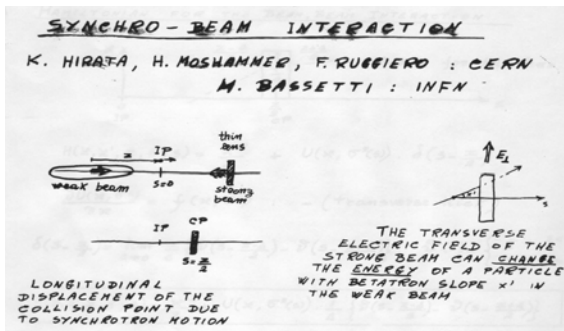 SYNCHRO-BEAM INTERACTION
K. HIRATA, H. MOSHAMMER, F. RUGGIERO : CERN
M. BASSETTI : INFN
x
IP
thin
lens
weak beam
S=0
strong
beam
IP
CP
S=x/2
LONGITUDINAL
DISPLACEMENT OF THE
COLLISION POINT DUE
TO SYNCHROTRON MOTION
E⊥
x'
s
THE TRANSVERSE
ELECTRIC FIELD OF THE
STRONG BEAM CAN CHANGE
THE ENERGY OF A PARTICLE
WITH BETATRON SLOPE x' IN
THE WEAK BEAM